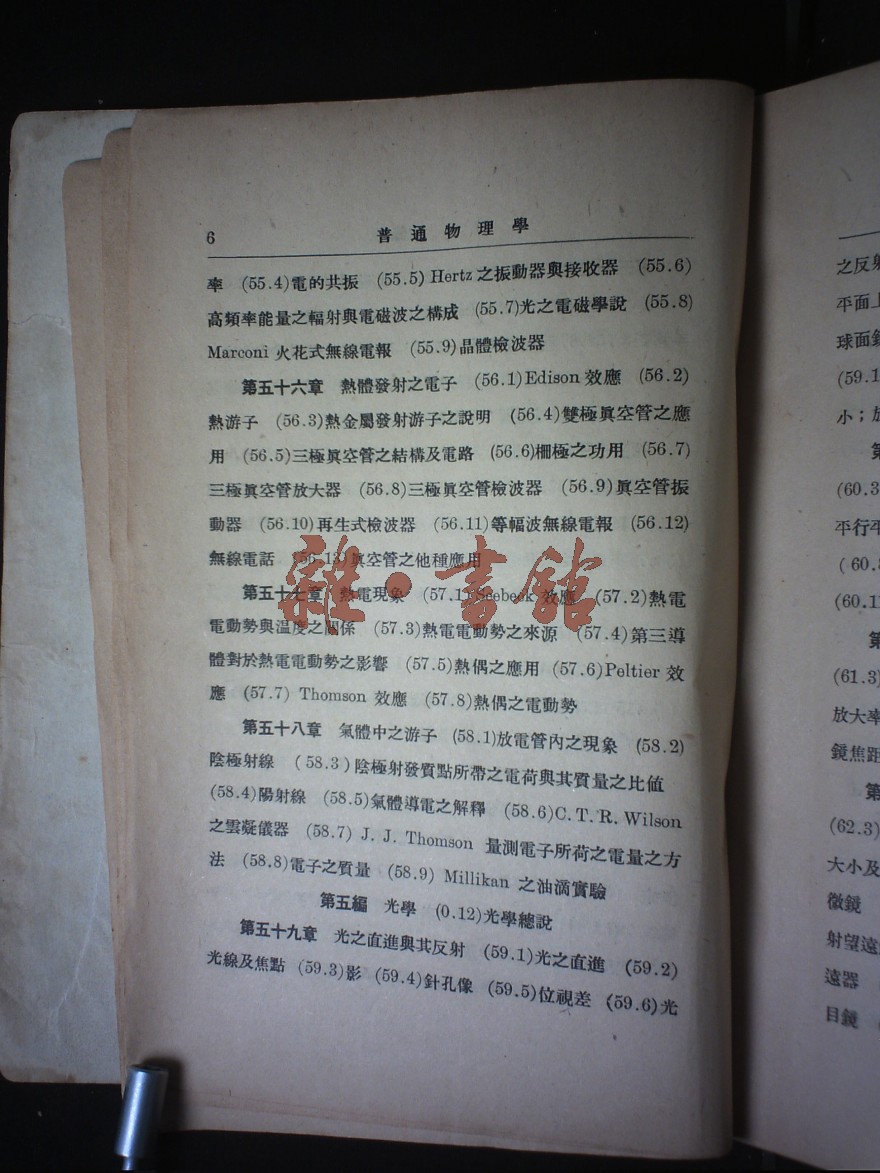 6 普通物理學
率 (55.4)電的共振 (55.5) Hertz 之振動器與接收器 (55.6)
高頻率能量之輻射與電磁波之構成 (55.7)光之電磁學說 (55.8)
Marconi 火花式無線電報 (55.9)晶體檢波器
第五十六章 熱體發射之電子 (56.1)Edison 效應 (56.2)
熱游子 (56.3)熱金屬發射游子之說明 (56.4)雙極眞空管之應
用 (56.5)三極眞空管之結構及電路 (56.6)柵極之功用 (56.7)
三極眞空管放大器 (56.8)三極眞空管檢波器 (56.9)眞空管振
動器 (56.10)再生式檢波器 (56.11)等幅波無線電報 (56.12)
無線電話 (56.13)眞空管之他種應用
雜·書館
第五十七章 熱電現象 (57.1)Seebeck 效應 (57.2)熱電
電動勢與温度之關係 (57.3)熱電電動勢之來源 (57.4)第三導
體對於熱電電動勢之影響 (57.5)熱偶之應用 (57.6)Peltier 效
應 (57.7) Thomson 效應 (57.8)熱偶之電動勢
第五十八章 氣體中之游子 (58.1)放電管內之現象 (58.2)
陰極射線 (58.3)陰極射發質點所帶之電荷與其質量之比値
(58.4)陽射線 (58.5)氣體導電之解釋 (58.6)C. T. R. Wilson
之雲凝儀器 (58.7) J. J. Thomson 量測電子所荷之電量之方
法 (58.8)電子之質量 (58.9) Millikan 之油滴實驗
第五編 光學 (0.12)光學總說
第五十九章 光之直進與其反射 (59.1)光之直進 (59.2)
光線及焦點 (59.3)影 (59.4)針孔像 (59.5)位視差 (59.6)光
之反射
平面上
球面鏡
(59.1
小；放
第
(60.3
平行平
(60.8
(60.11
第
(61.3)
放大率
鏡焦距
第
(62.3)
大小及
微鏡
射望遠
遠器
目鏡